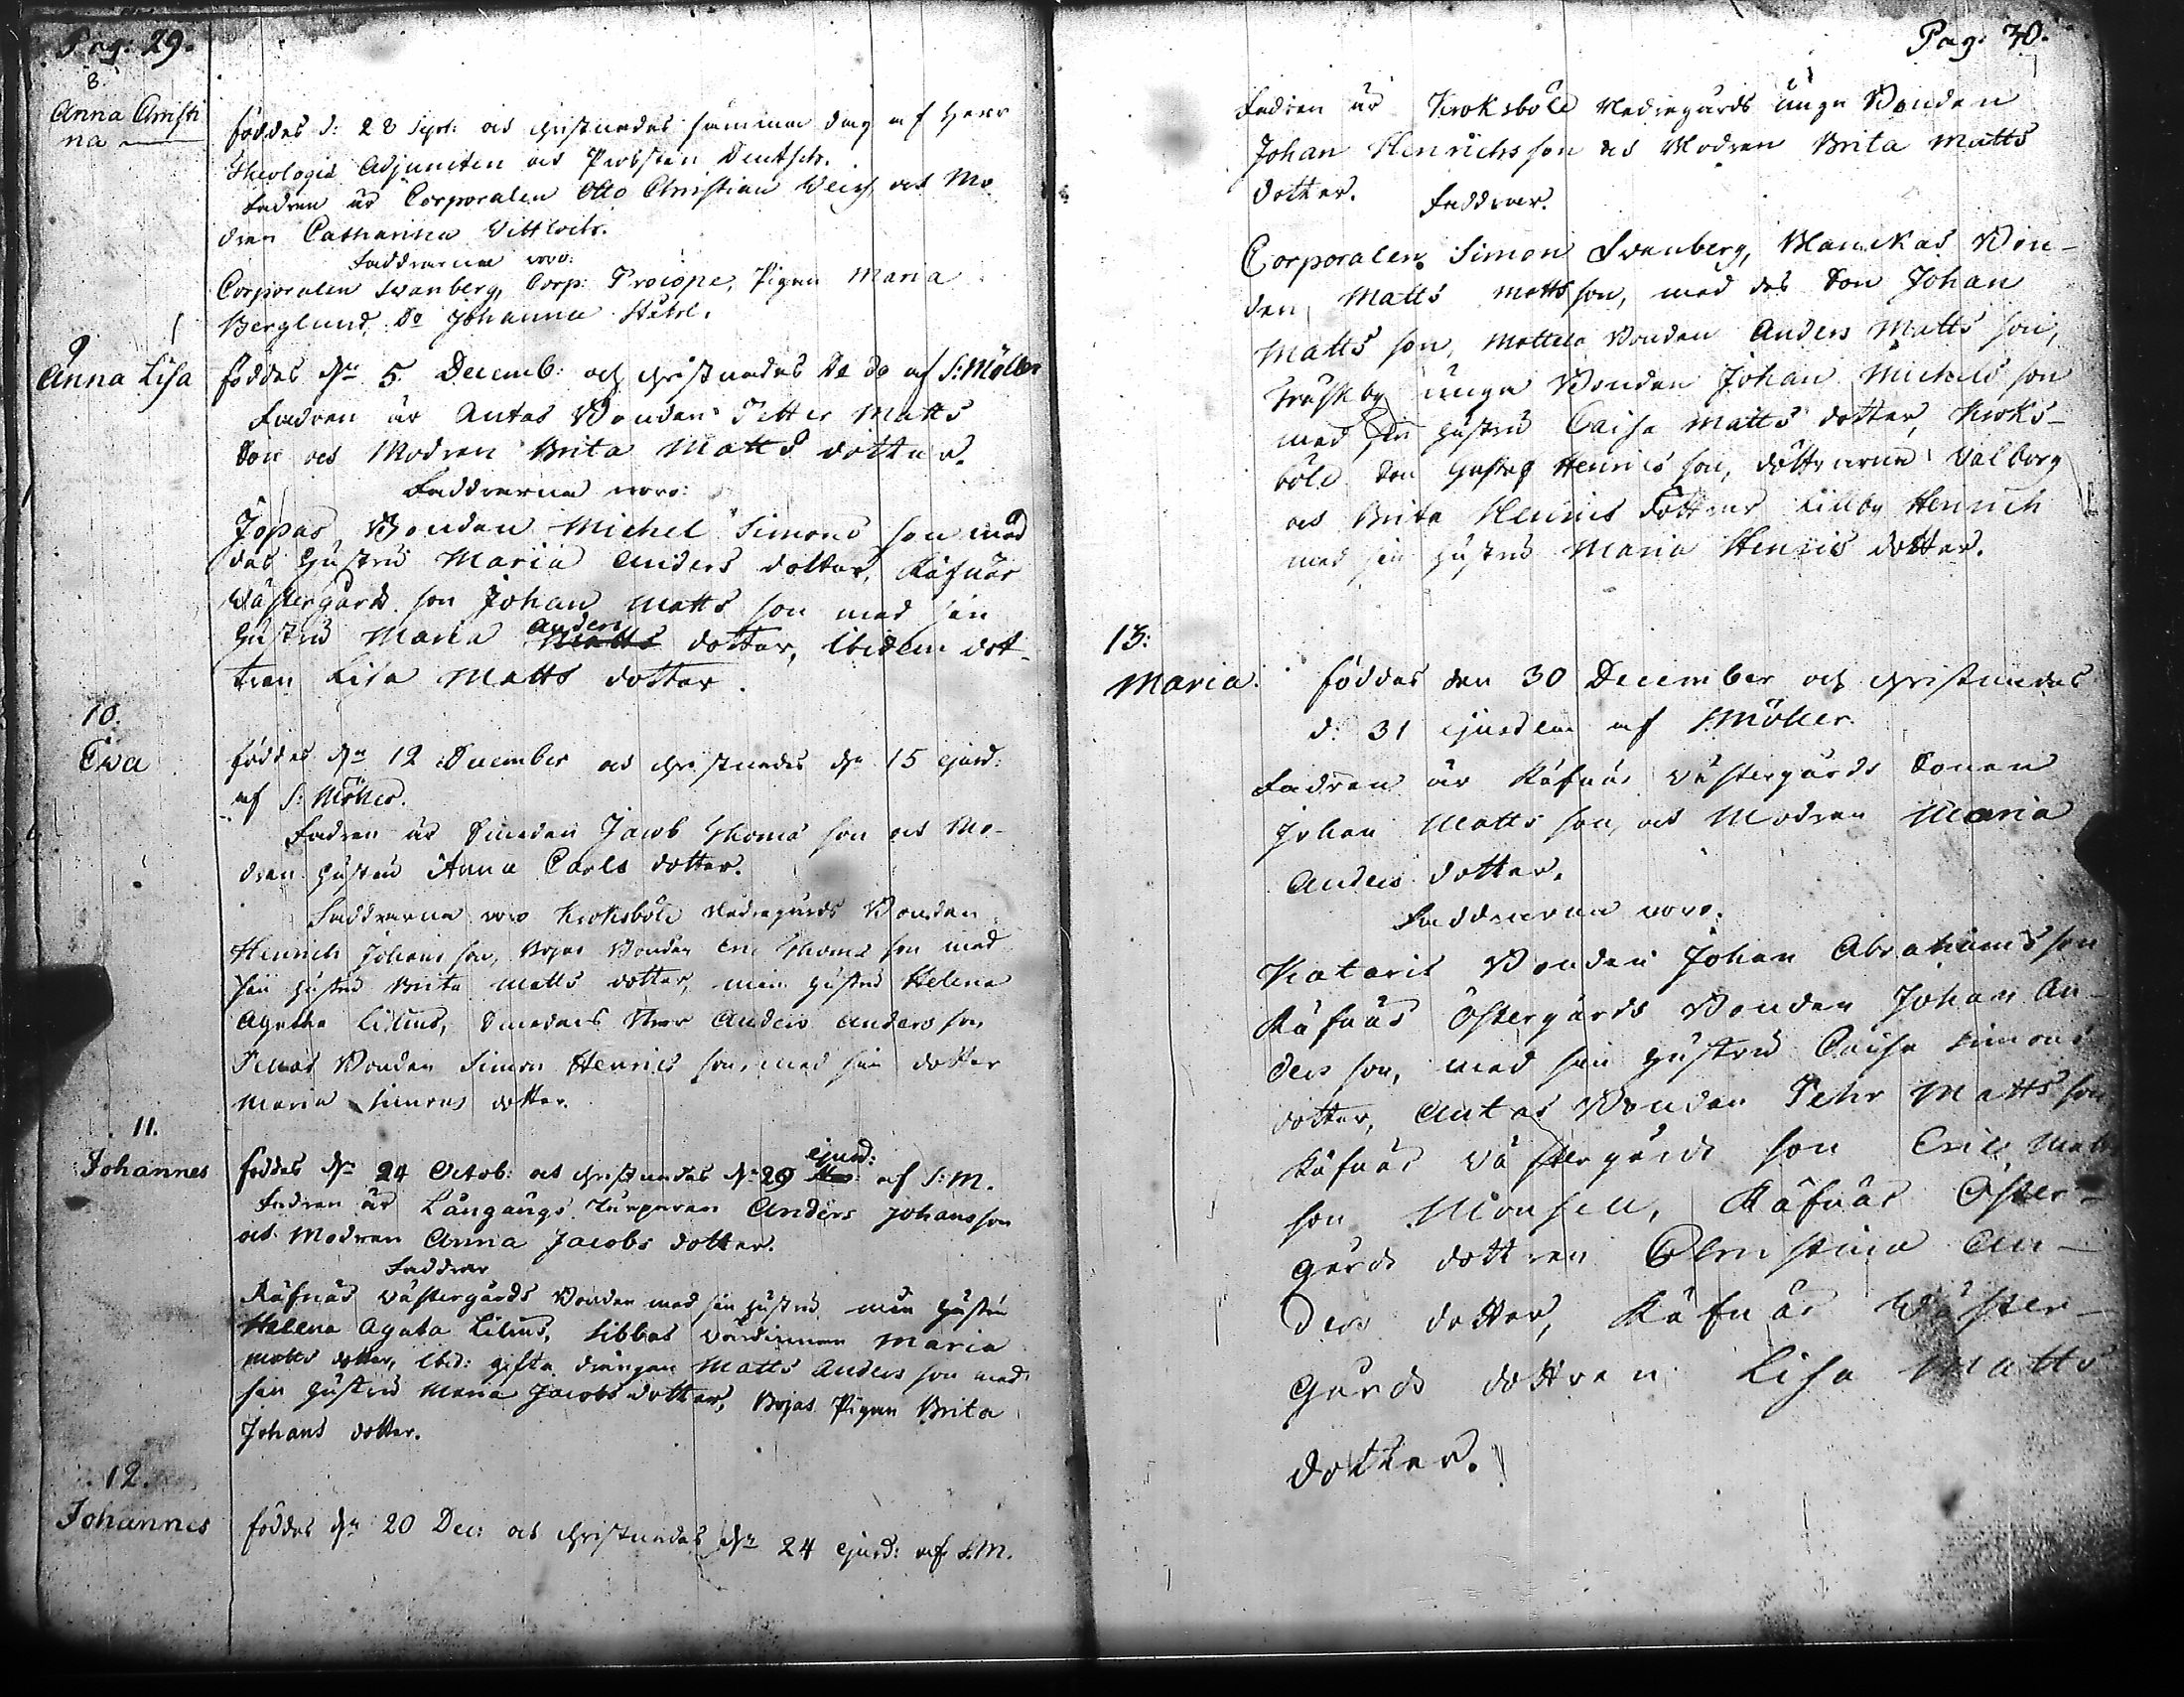 Pag: 29.
8.
Anna Christi
na
föddes d: 28 Sept: och christnades samma dag af Herr
Theologiæ Adjuncten och Probsten Deutsch.
Fadren är Corporalen Otto Christian och Mo
dren Catharina
Faddrarna woro:
Corporalen Svanberg, Corp: Procopé, Pigan Maria
Berglund, Do Johanna Ståhl.
9
Anna Lisa
föddes dn 5 Decemb: och christnades de do af S: Möller
Fadren är Antas Bonden Petter Matts
Son och Modren Brita Matts dotter.
Faddrarna woro:
Jopas Bonden Michel Simons son med
des Hustru Maria Anders dotter, Räfnäs
Wästergårds son Johan Matts son med sin
Hustru Maria Anders Matts dotter, Ibidem dot-
tren Lisa Matts dotter.
10.
Ewa
föddes dn 12 December och christnades dn 15 ejusd:
af S: Möller.
Fadren är Smeden Jacob Thomæ son och Mo-
dren Hustru Anna Carls dotter.
Faddrarna woro Kroksböle Nedregårds Bonden
Henrich Johans son, Bojas Bonden Eric Thomæ son med
sin hustru Brita Matts dotter, min hustru Helena
Agatha Lilius, Smedens Anders Anders son
Bonden Simon Henrics son, med sin dotter
Maria Simons dotter.
11.
Johannes
föddes dn 24 Octob: och christnades dn 29 ejusd: af S: M.
Fadren är Långängs Torparen Anders Johans son
och Modren Anna Jacobs dotter.
Faddrar
Räfnäs Wästergårds Bonden med sin hustru, min hustru
Helena Agata Lilius, Sibbas Wärdinnan Maria
Matts dotter, Ibid: gifta drängen Matts Anders son med
sin hustru Maria Jacobs dotter, Bojas Pigan Brita
Johans dotter.
12.
Johannes
föddes dn 20 Dec: och christnades dn 24 ejusd: af S. M.
Pag: 30.
Fadren är Kroksböle Nedregårds unga Bonden
Johan Henrichs son och Modren Brita Matts
dotter. Faddrar.
Corporalen Simon Svanberg, Bon-
den Matts Matts son, med des Son Johan
Matts son, Bonden Anders Matts son,
Truskby unga Bonden Johan Michels son
med sin hustru Caisa Matts dotter, Kroks-
böle Son Gustaf Henrics son, döttrarna Valborg
och Brita Henrics döttrar Lillby Henrich
med sin hustru Maria Henrics dotter.
13:
Maria.
föddes den 30 December och christnades
d: 31 ejusdem af S: Möller.
Fadren är Räfnäs Wästergårds Sonen
Johan Matts son, och Modren Maria
Anders dotter.
Faddrarna woro.
Kataris Bonden Johan Abrahams son
Räfnäs Östergårds Bonden Johan An-
ders son, med sin hustru Caisa Simons
dotter, Antas Bonden Pehr Matts son
Räfnäs Wästergårds son Eric Matts
son Monsell, Räfnäs Öster-
gårds dottren Christina An-
ders dotter, Räfnäs Wäster-
gårds dottren Lisa Matts
dotter.